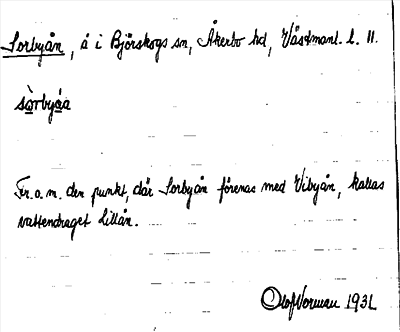 Sorbyån, å i Björskogs sn, Åkerbo hd, Västmanl. l. 11.
sòrbyåa
Fr.o.m. den punkt, där Sorbyån förenas med Vibyån, kallas
vattendraget Lillån.
Olof Norman 1931